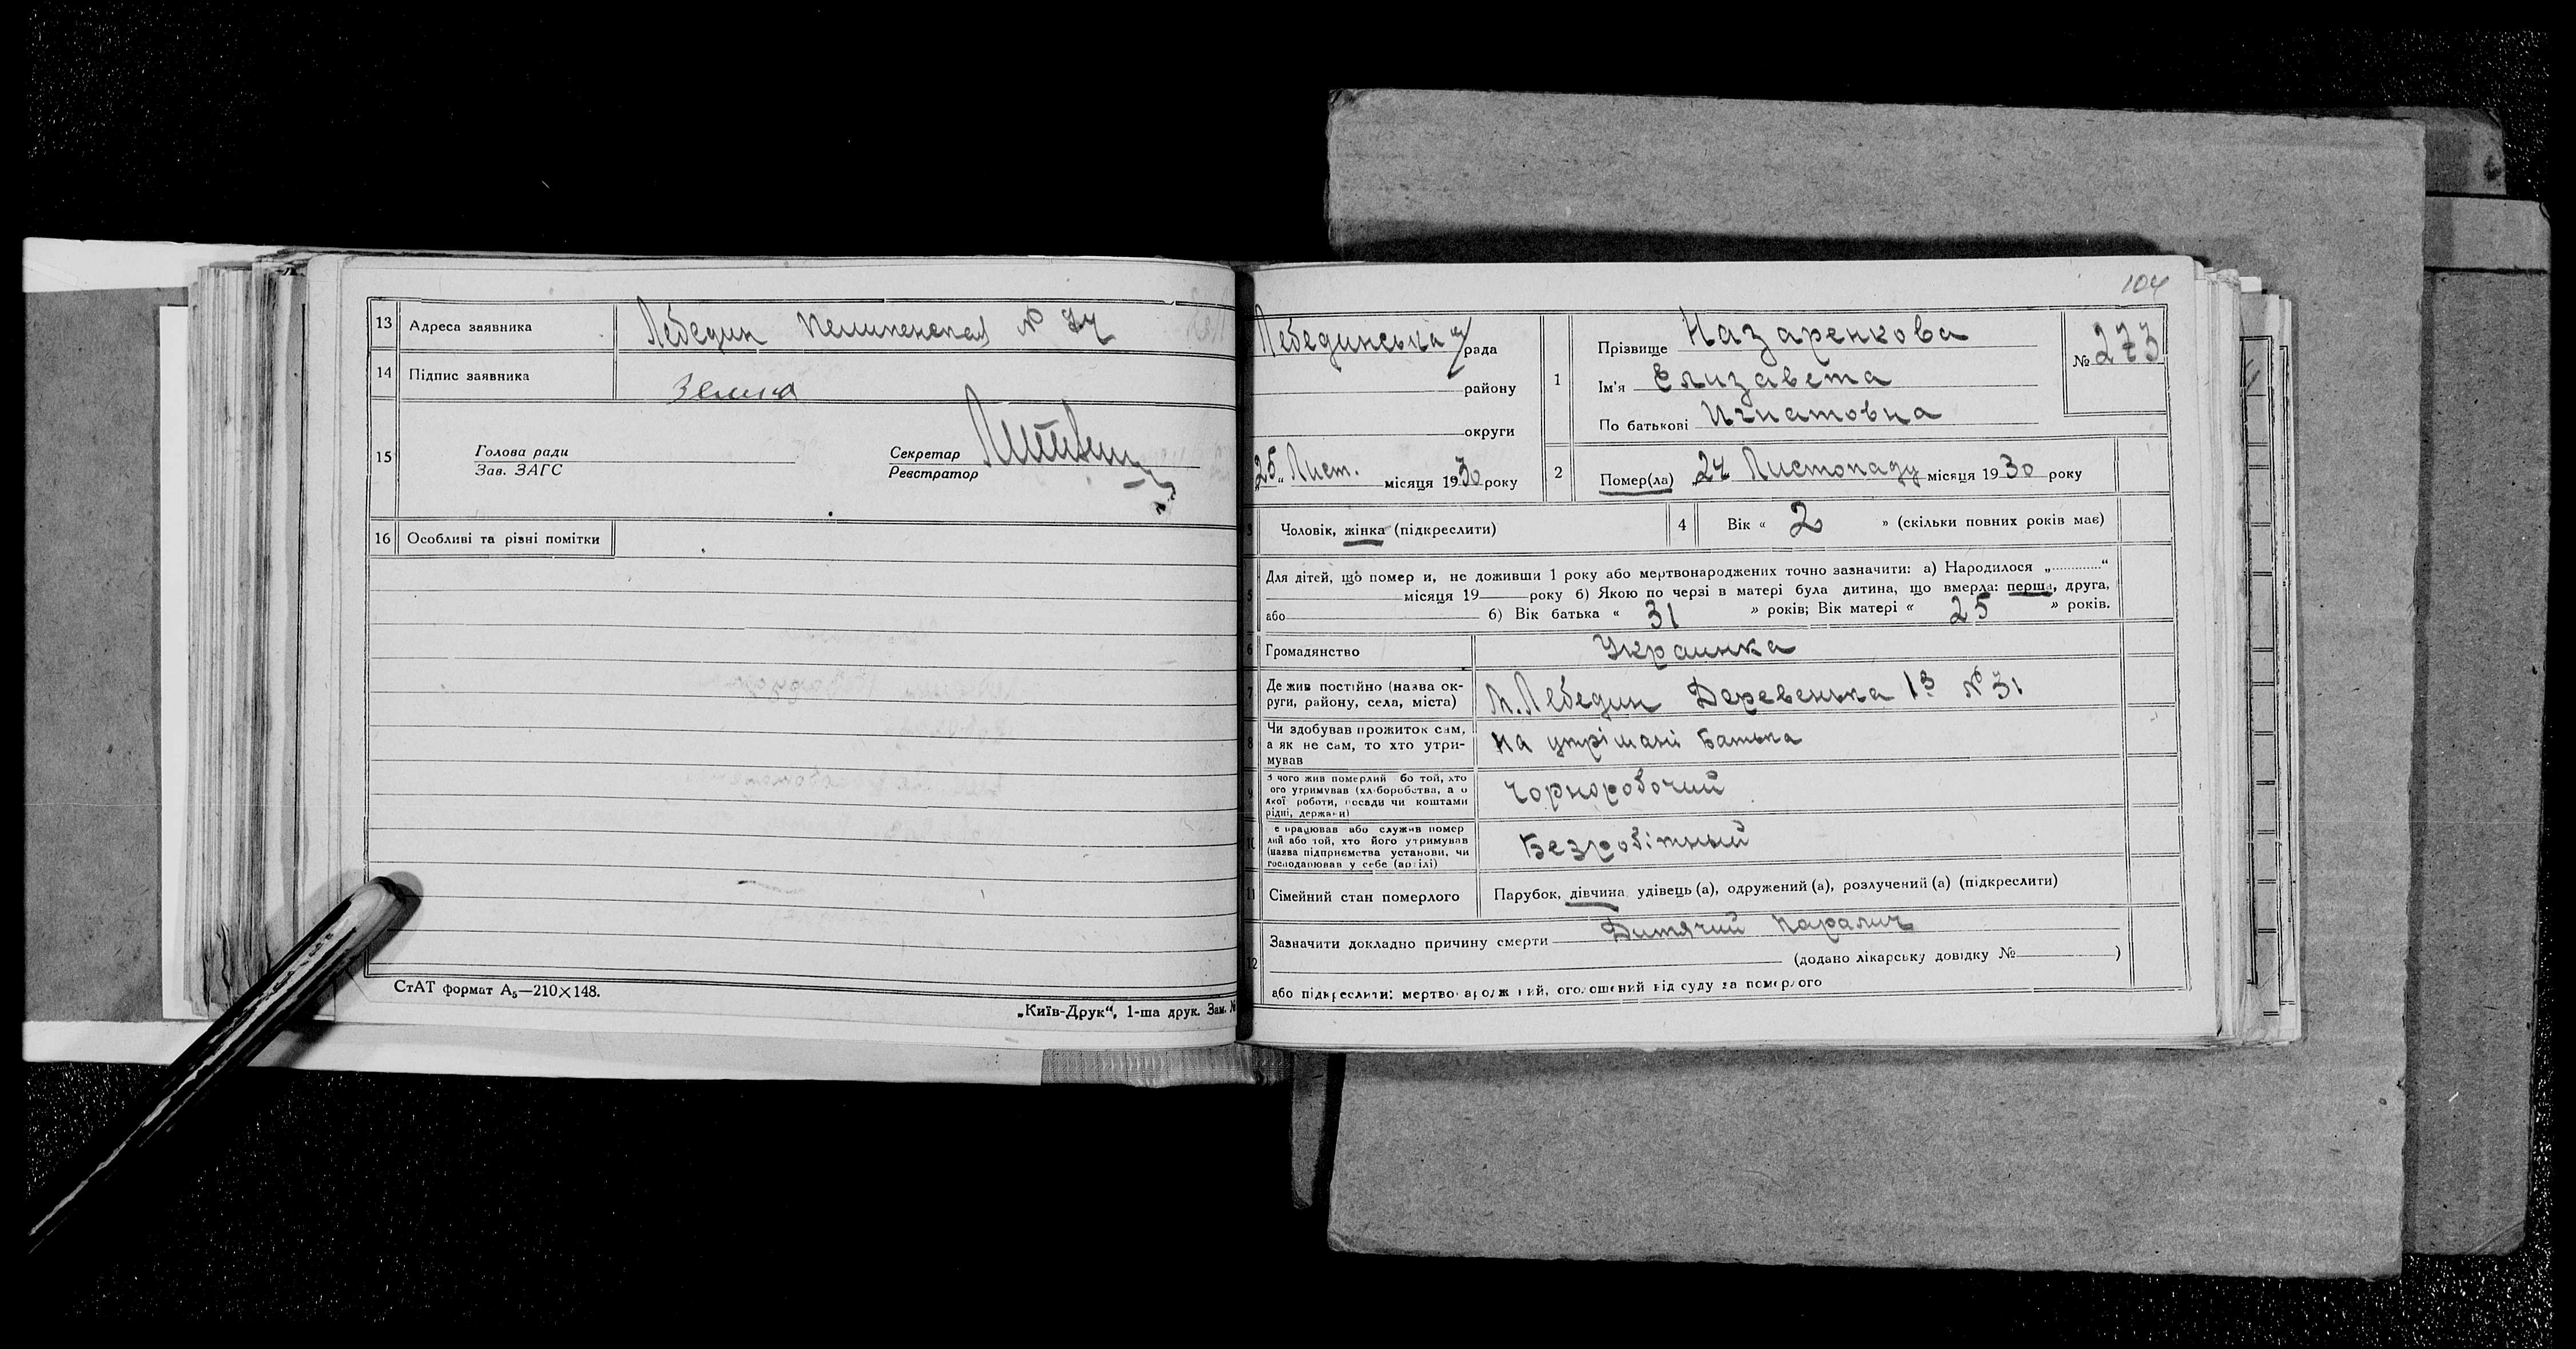 13 Адреса заявника Лебедин
14 Підпис заявника
15 Голова ради
Зав. ЗАГС
Секретар
Реєстратор
16 Особливі та різні помітки
СтАТ формат А5—210×148.
„Київ-Друк“, 1-ша друк. Зам. №
104
Лебединська рада
району
округи
„25“ Лист. місяця 1930 року
1 Прізвище Назаренкова
Ім'я Елизавета
По батькові Игнатовна
№ 273
2 Помер(ла) 24 Листопаду місяця 1930 року
3 Чоловік, жінка (підкреслити)
4 Вік « 2 » (скільки повних років має)
5 Для дітей, що помер и, не доживши 1 року або мертвонароджених точно зазначити: а) Народилося „ “
місяця 19 року б) Якою по черзі в матері була дитина, що вмерла: перша, друга,
або б) Вік батька « 31 » років; Вік матері « 25 » років.
6 Громадянство Украинка
7 Де жив постійно (назва ок-
руги, району, села, міста) м. Лебедин Деревенька 13 № 31
8 Чи здобував прожиток сам,
а як не сам, то хто утри-
мував На утрімані Батька
9 З чого жив померлий бо той, хто
ого утримував (хліборобства, а о
якої роботи, посади чи коштами
рідні, держави) Чорноробочий
10 е працював або служив помер
лий або той, хто його утримував
(назва підприємства установи, чи
господарював у себе (артілі) Безробітный
11 Сімейний стан померлого Парубок, дівчина, удівець (а), одружений (а), розлучений (а) (підкреслити)
12 Зазначити докладно причину смерти Дитячий паралич
(додано лікарську довідку № )
або підкреслити: мертвонароджений, оголошений від суду за померлого